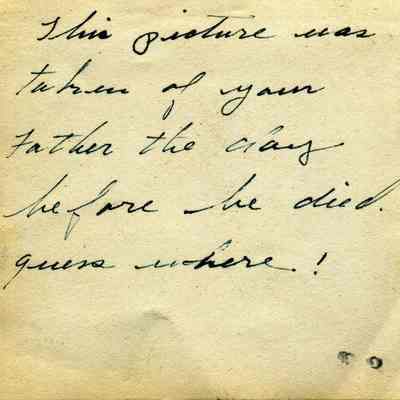 This picture was
taken of your
Father the day
before he died.
guess where!